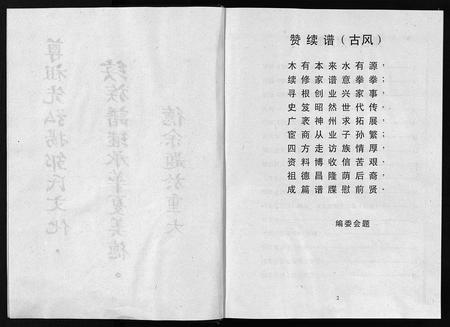 赞续谱（古风）
木有本来水有源，
续修家谱意拳拳；
寻根创业兴家事，
史笈昭然世代传。
广袤神州求拓展，
宦商从业子孙繁；
四方走访族情厚，
资料博收信苦艰。
祖德昌隆荫后裔，
成篇谱牒慰前贤。
编委会题
2